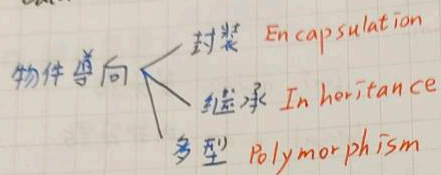 物件導向
封裝 Encapsulation
繼承 Inheritance
多型 Polymorphism